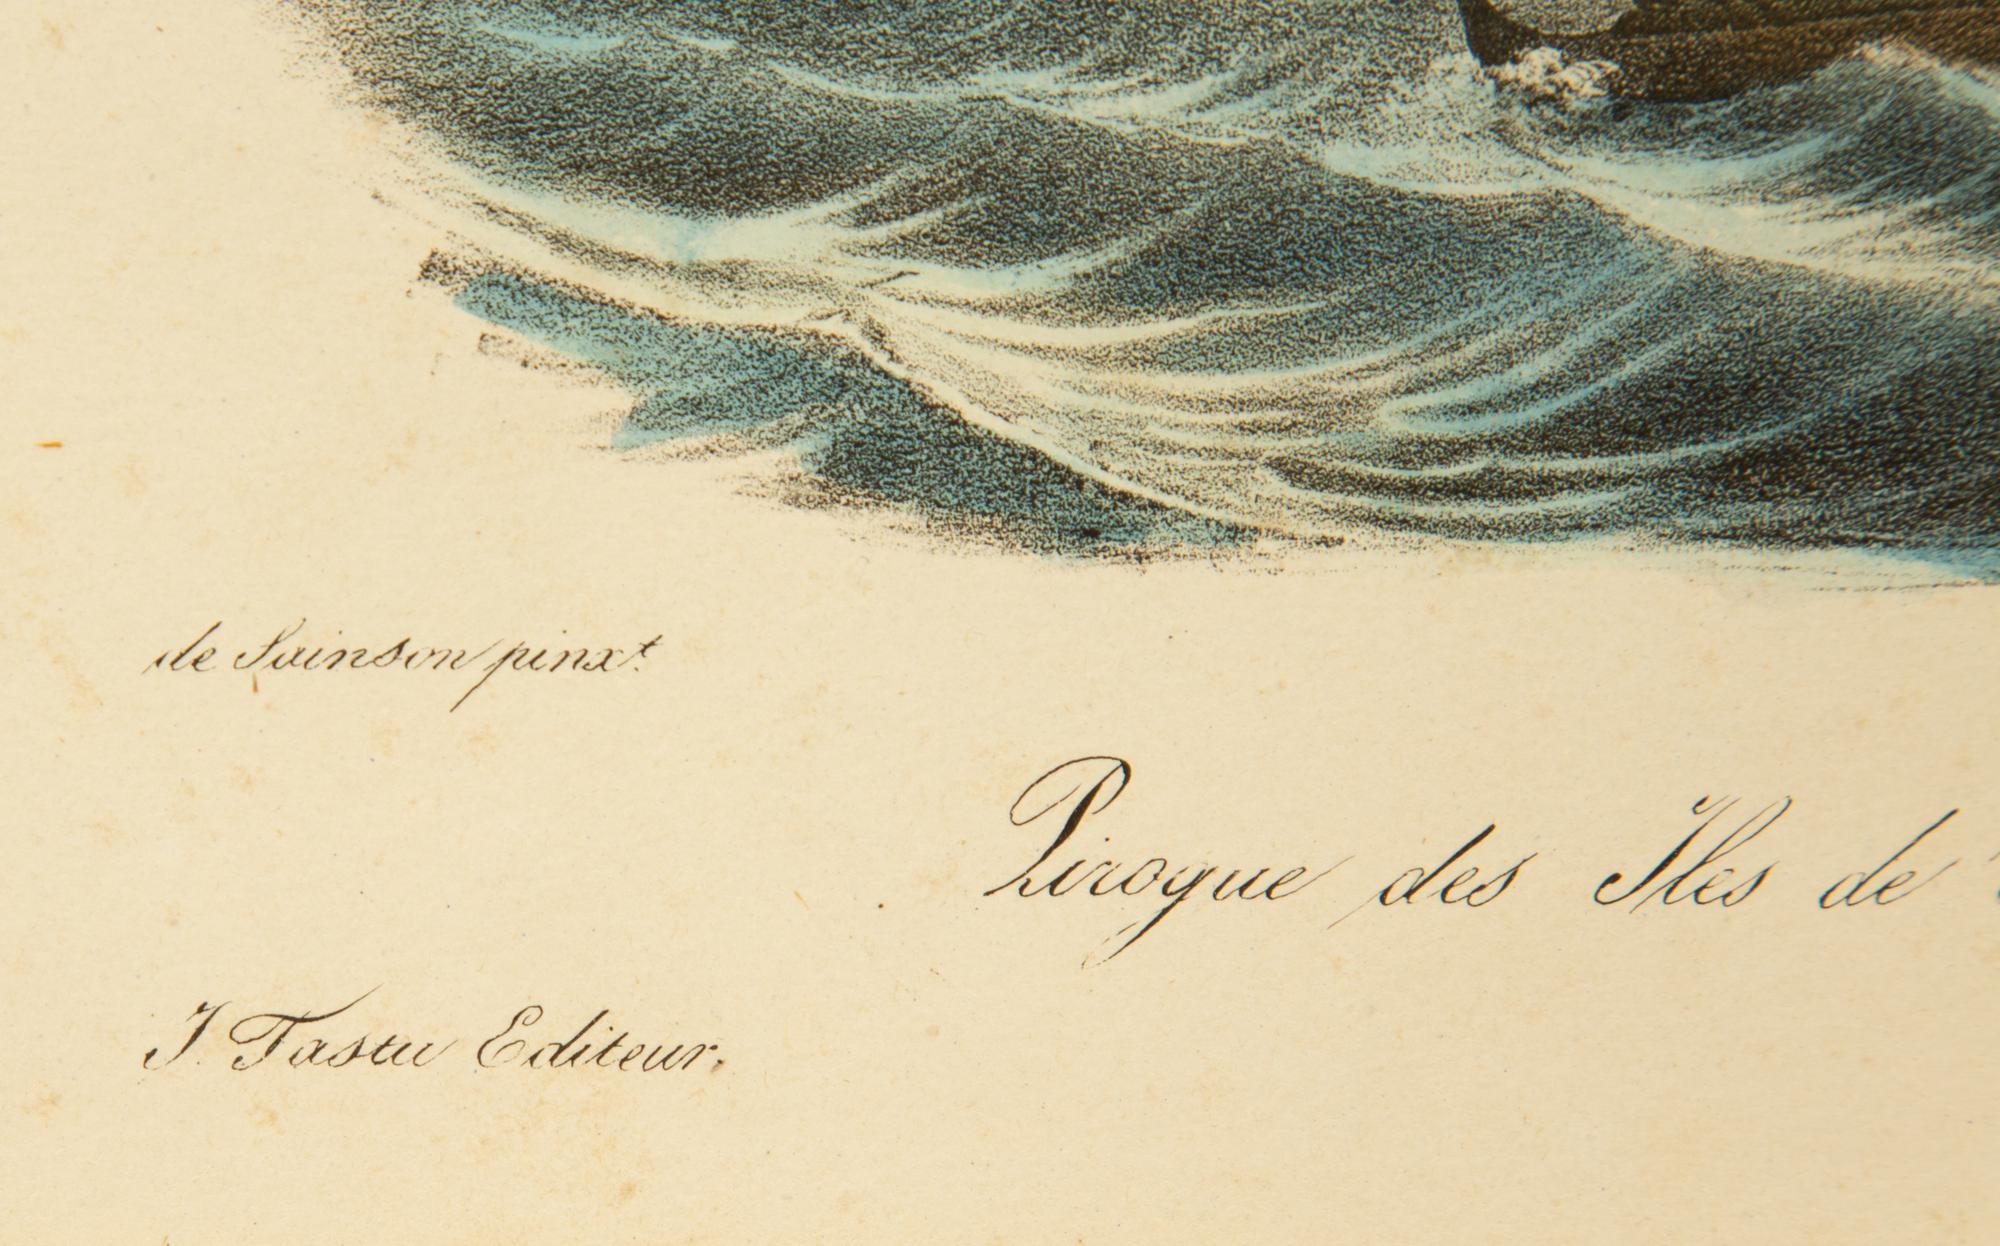 de Sainson pinx.t
Pirogue des Iles de
J. Tastu Editeur.